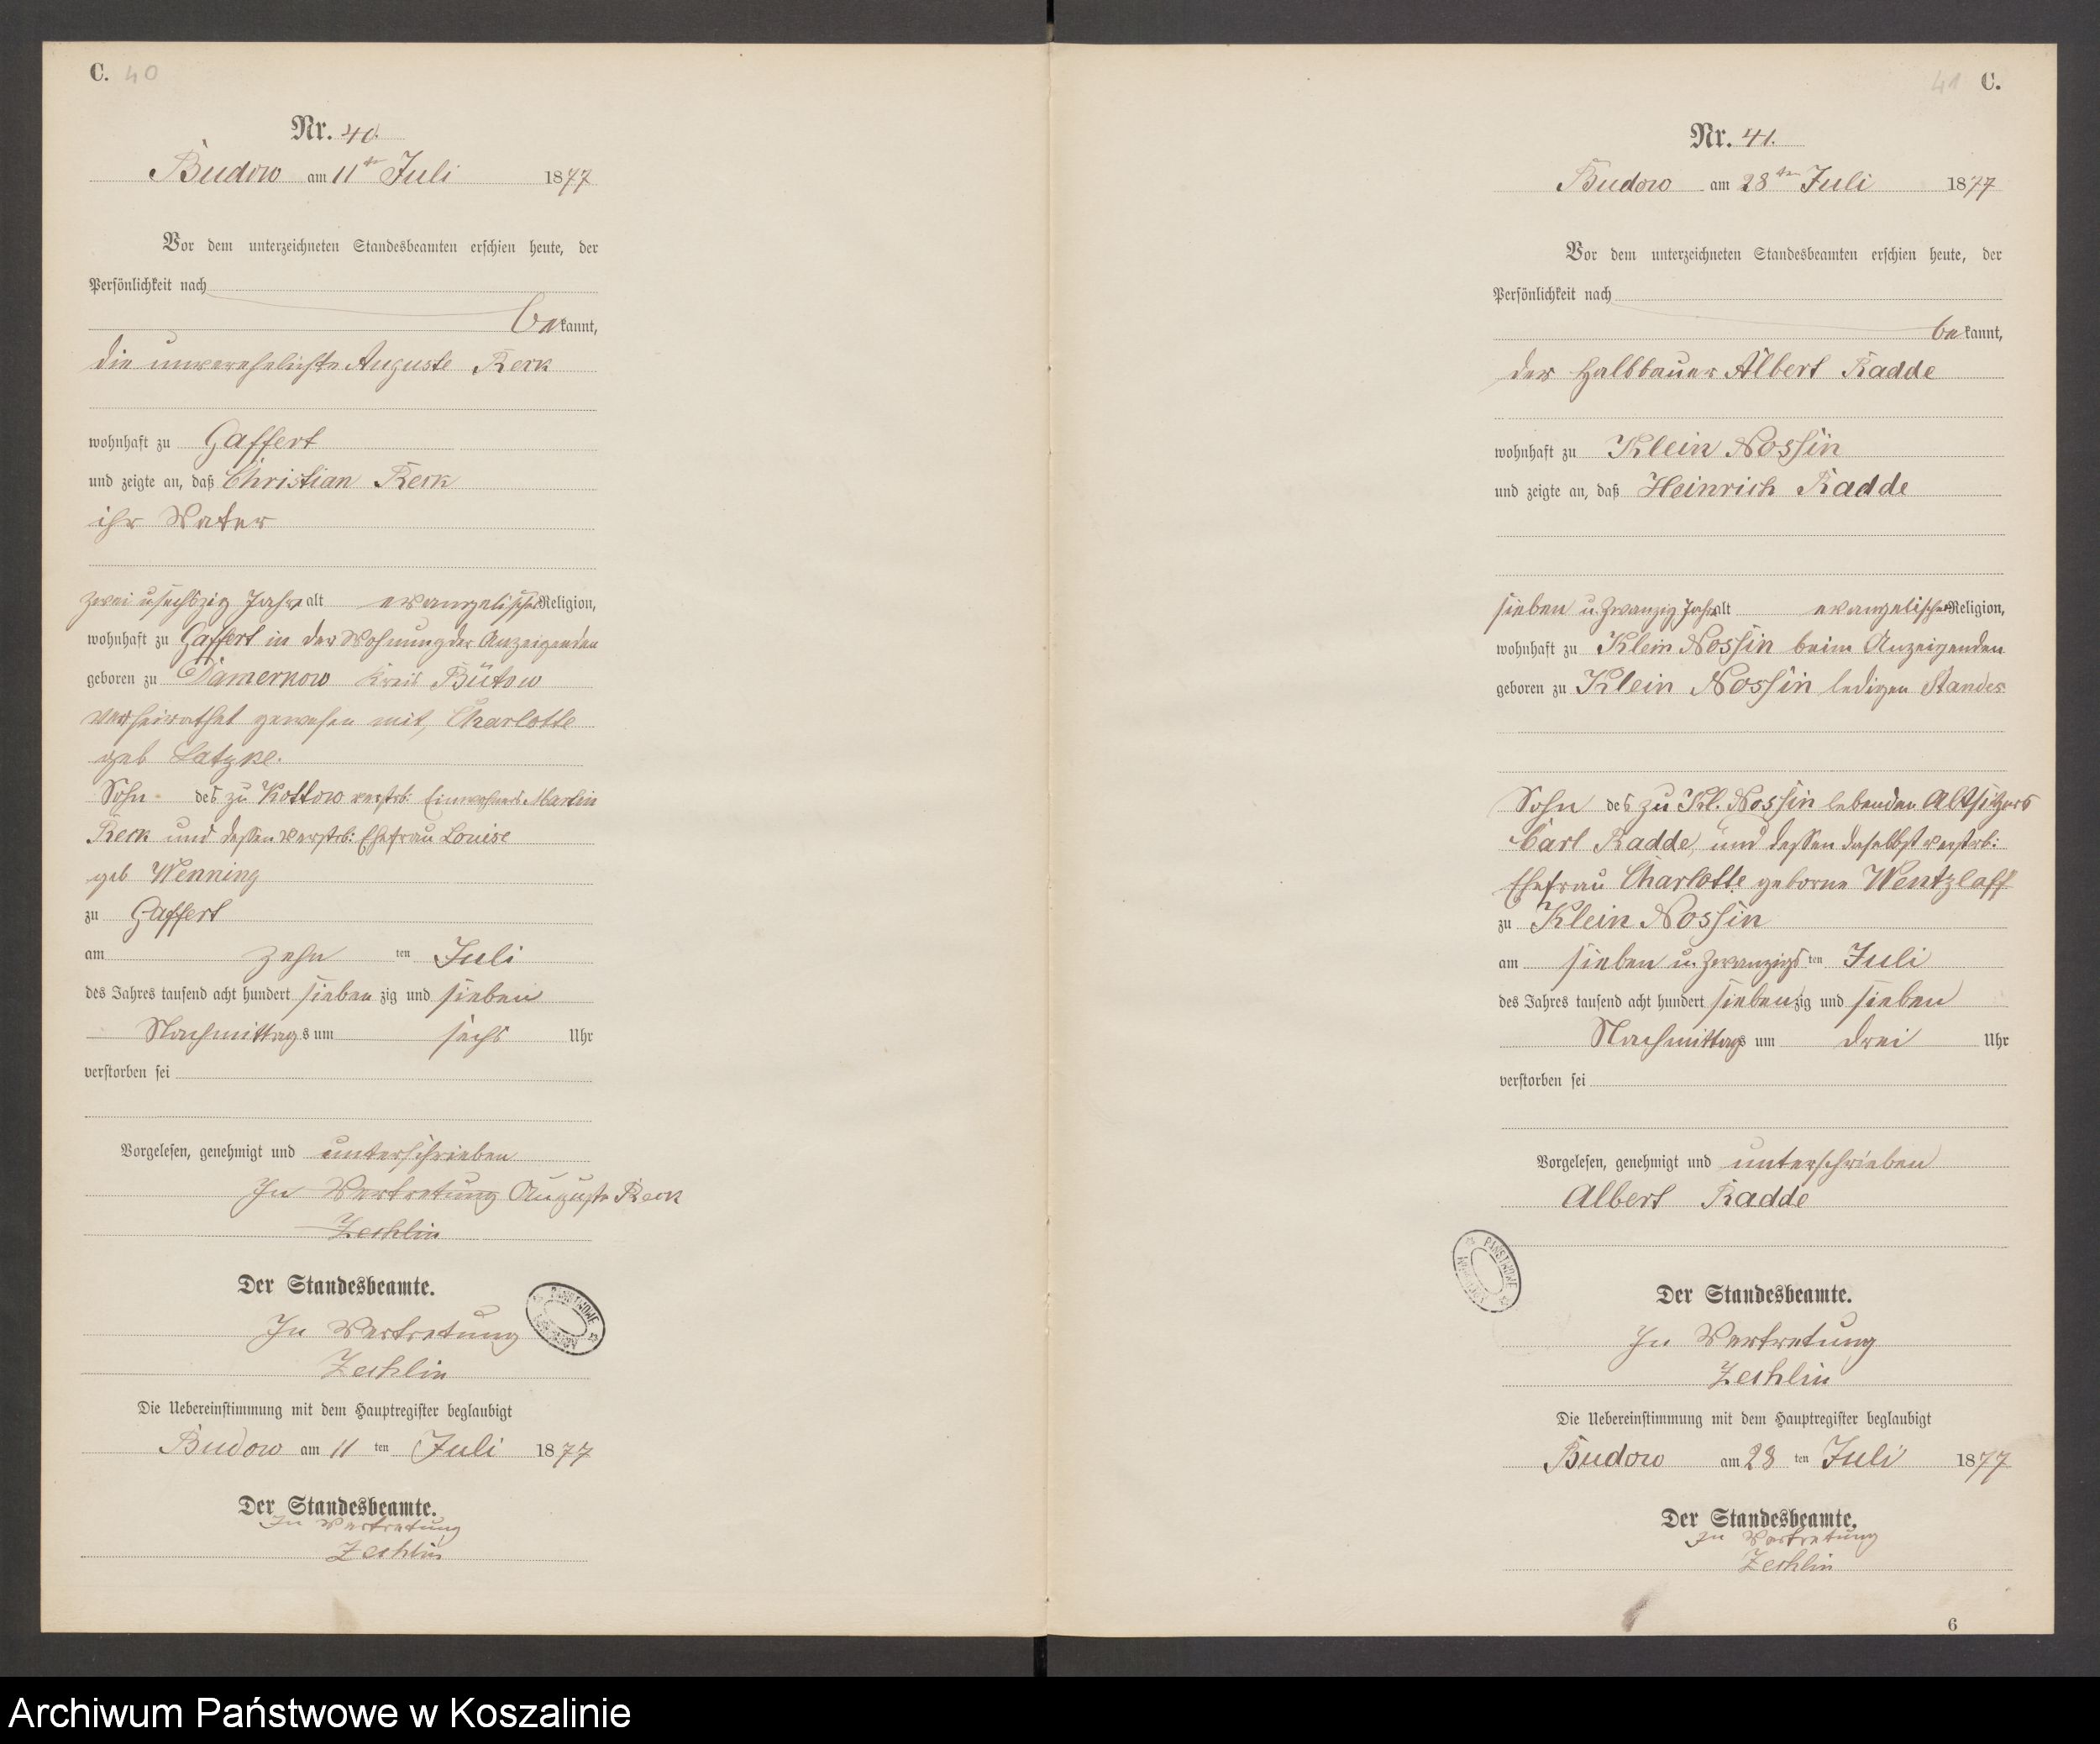 C. 40
Nr. 40.
Budow am 11ten Juli 1877
Vor dem unterzeichneten Standesbeamten erschien heute, der
Persönlichkeit nach
bekannt,
die unverehelichte Auguste Reck
wohnhaft zu Gaffert
und zeigte an, daß Christian Reck
ihr Vater
zwei u sechszig Jahre alt evangelischer Religion,
wohnhaft zu Gaffert in der Wohnung der Anzeigenden
geboren zu Damerkow Kreis Bütow
verheirathet gewesen mit, Charlotte
geb Latzke.
Sohn des zu Kottow verstrb. Einwohners Martin
Reck und dessen verstrb: Ehefrau Louise
geb Wenning
zu Gaffert
am zehn ten Juli
des Jahres tausend acht hundert sieben zig und sieben
Nachmittags um sechs Uhr
verstorben sei
Vorgelesen, genehmigt und unterschrieben
In Vertretung Auguste Reck
Zechlin
Der Standesbeamte.
In Vertretung
Zechlin
Die Uebereinstimmung mit dem Hauptregister beglaubigt
Budow am 11 ten Juli 1877
Der Standesbeamte.
In Vertretung
Zechlin
41 C.
Nr. 41.
Budow am 28ten Juli 1877
Vor dem unterzeichneten Standesbeamten erschien heute, der
Persönlichkeit nach
bekannt,
der Halbbauer Albert Radde
wohnhaft zu Klein Nossin
und zeigte an, daß Heinrich Radde
sieben u. zwanzig Jahre alt evangelischer Religion,
wohnhaft zu Klein Nossin beim Anzeigenden
geboren zu Klein Nossin ledigen Standes
Sohn des zu Kl. Nossin lebenden Altsitzers
Carl Radde, und dessen daselbst verstrb:
Ehefrau Charlotte geborne Wentzlaff
zu Klein Nossin
am sieben u. zwanzigs ten Juli
des Jahres tausend acht hundert siebenzig und sieben
Nachmittags um drei Uhr
verstorben sei
Vorgelesen, genehmigt und unterschrieben
Albert Radde
PAŃSTWOWE
Der Standesbeamte.
In Vertretung
Zechlin
Die Uebereinstimmung mit dem Hauptregister beglaubigt
Budow am 28 ten Juli 1877
Der Standesbeamte.
In Vertretung
Zechlin
6
Archiwum Państwowe w Koszalinie